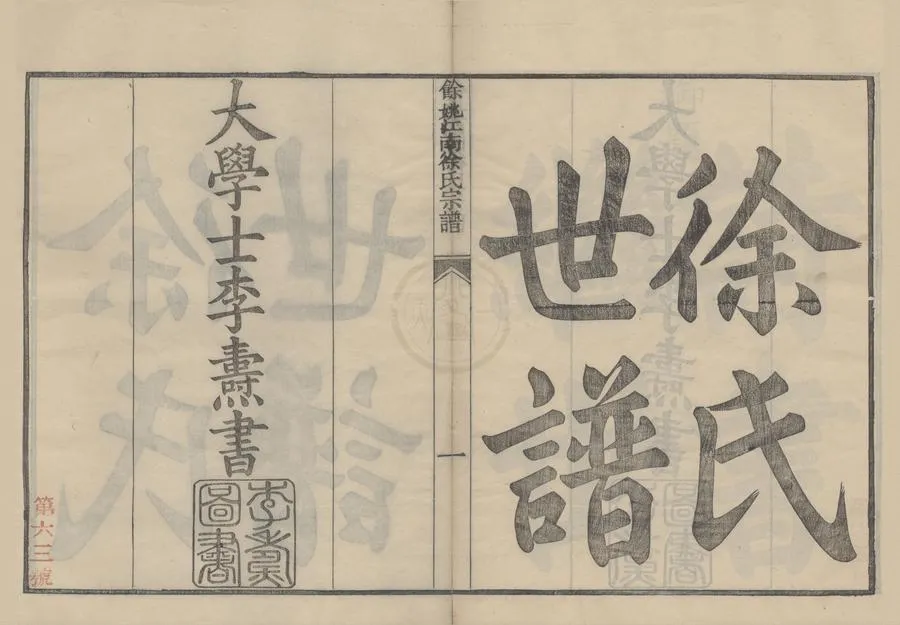 徐氏
世譜
餘姚江南徐氏宗譜
一
大學士李燾書
李燾圖書
第六三號